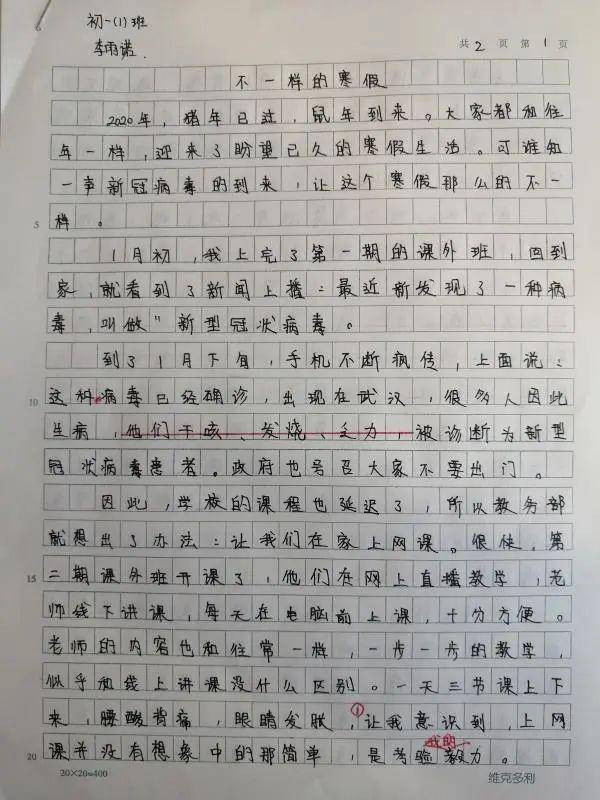 初一(1)班
李雨诺.
共 2 页 第 1 页
不一样的寒假
2020年，猪年已过，鼠年到来。大家都和往
年一样，迎来了盼望已久的寒假生活。可谁知
一声新冠病毒的到来，让这个寒假那么的不一
5 样。
1月初，我上完了第一期的课外班，回到
家，就看到了新闻上播：最近新发现了一种病
毒，叫做"新型冠状病毒。
到了1月下旬，手机不断疯传，上面说：
10 这种病毒已经确诊，出现在武汉，很多人因此
生病，他们干咳、发烧、乏力，被诊断为新型
冠状病毒患者。政府也号召大家不要出门。
因此，学校的课程也延迟了，所以教务部
就想出了办法：让我们在家上网课。很快，第
15 二期课外班开课了，他们在网上直播教学，老
师线下讲课，每天在电脑前上课，十分方便。
老师的内容也和往常一样，一步一步的教学，
似乎和线上讲课没什么区别。一天三节课上下
来，腰酸背痛，眼睛发酸，①让我意识到，上网
20 课并没有想象中的那简单，是考验我的毅力。
20×20=400
维克多利